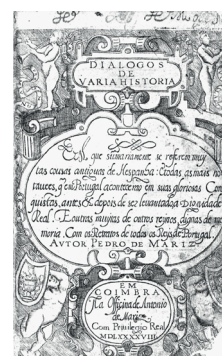 DIALOGOS
DE
VARIA HISTORIA
Em que sumariamente se referem muy
tas cousas antiguas de Hespanha: E todas as mais no
tauees, q̃ em Portugal acontecerão em suas gloriosas Con
quistas, antes & depois de ser leuantado a Dignidade
Real. E outras muytas de outros reynos, dignas de me
moria. Com os Retratos de todos os Reys de Portugal.
AVTOR PEDRO DE MARIZ
EM
COIMBRA
Na Officina de Antonio
de Mariz
Com Priuilegio Real
MDLXXXXVIII